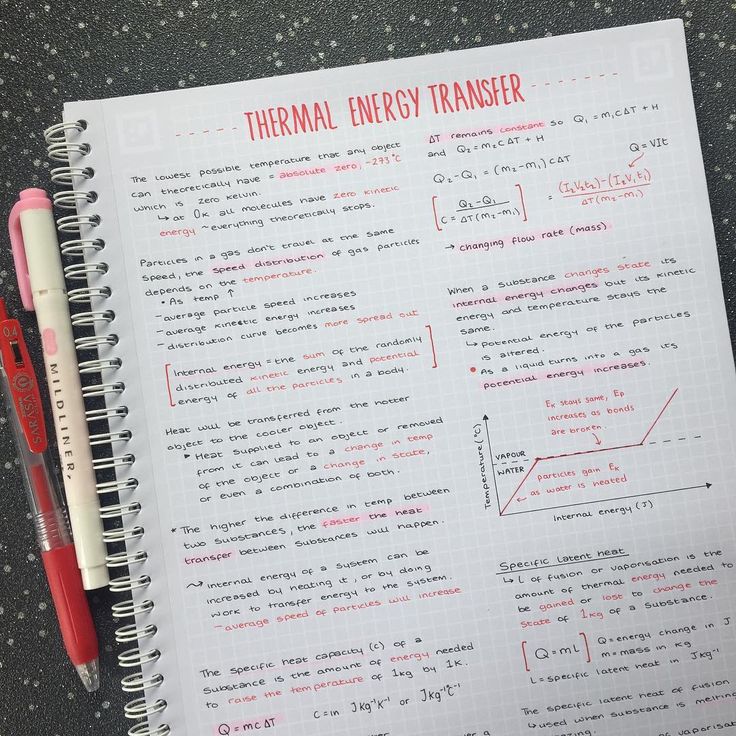 THERMAL ENERGY TRANSFER
The lowest possible temperature that any object
can theoretically have = absolute zero, -273°C
which is zero kelvin.
↳ at 0K all molecules have zero kinetic
energy ~ everything theoretically stops.
Particles in a gas don't travel at the same
speed, the speed distribution of gas particles
depends on the temperature.
• As temp ↑
- average particle speed increases
- average kinestic energy increases
- distribution curve becomes more spread out
[Internal energy = the sum of the randomly
distributed kinetic energy and potential
energy of all the particles in a body.]
Heat will be transferred from the hotter
object to the cooler object.
▶ Heat supplied to an object or removed
from it can lead to a change in temp
of the object or a change in state,
or even a combination of both.
* The higher the difference in temp between
two substances, the faster the heat
transfer between substances will happen.
⤳ internal energy of a system can be
increased by heating it, or by doing
work to transfer energy to the system.
- average speed of particles will increase
The specific heat capacity (c) of a
substance is the amount of energy needed
to raise the temperature of 1kg by 1K.
Q = mcΔT C = in Jkg⁻¹K⁻¹ or Jkg⁻¹°C⁻¹
ΔT remains constant so Q₁ = m₁cΔT + H
and Q₂ = m₂cΔT + H
Q = VIt
Q₂ - Q₁ = (m₂ - m₁) cΔT
[C = Q₂ - Q₁ / ΔT(m₂ - m₁)] = (I₂V₂t₂) - (I₁V₁t₁) / ΔT(m₂ - m₁)
→ changing flow rate (mass)
When a substance changes state its
internal energy changes but its kinetic
energy and temperature stays the
same.
↳ potential energy of the particles
is altered.
• As a liquid turns into a gas its
potential energy increases.
Temperature (°C)
Eₖ stays same, Eₚ
increases as bonds
are broken.
VAPOUR
WATER
particles gain Eₖ
as water is heated
Internal energy (J)
Specific latent heat
↳ L of fusion or vaporisation is the
amount of thermal energy needed to
be gained or lost to change the
state of 1kg of a substance.
[Q = mL] Q = energy change in J
m = mass in kg
L = specific latent heat in Jkg⁻¹
The specific latent heat of fusion
↳ used when substance is melting
0.4
SARASA
MILDLINER